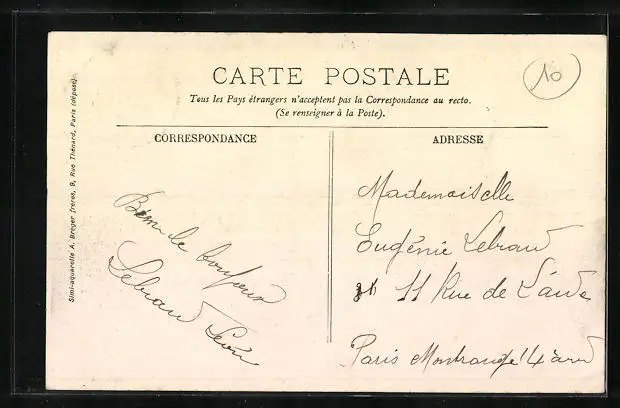 CARTE POSTALE
10
Tous les Pays étrangers n'acceptent pas la Correspondance au recto.
(Se renseigner à la Poste).
CORRESPONDANCE
ADRESSE
Simi-aquarelle A. Breger frères, 9, Rue Thénard, Paris (déposé)
de bonheur
Lebrau Léon
Mademoiselle
Eugénie Lebrau
11 Rue de L'aude
Paris Montrouge 14